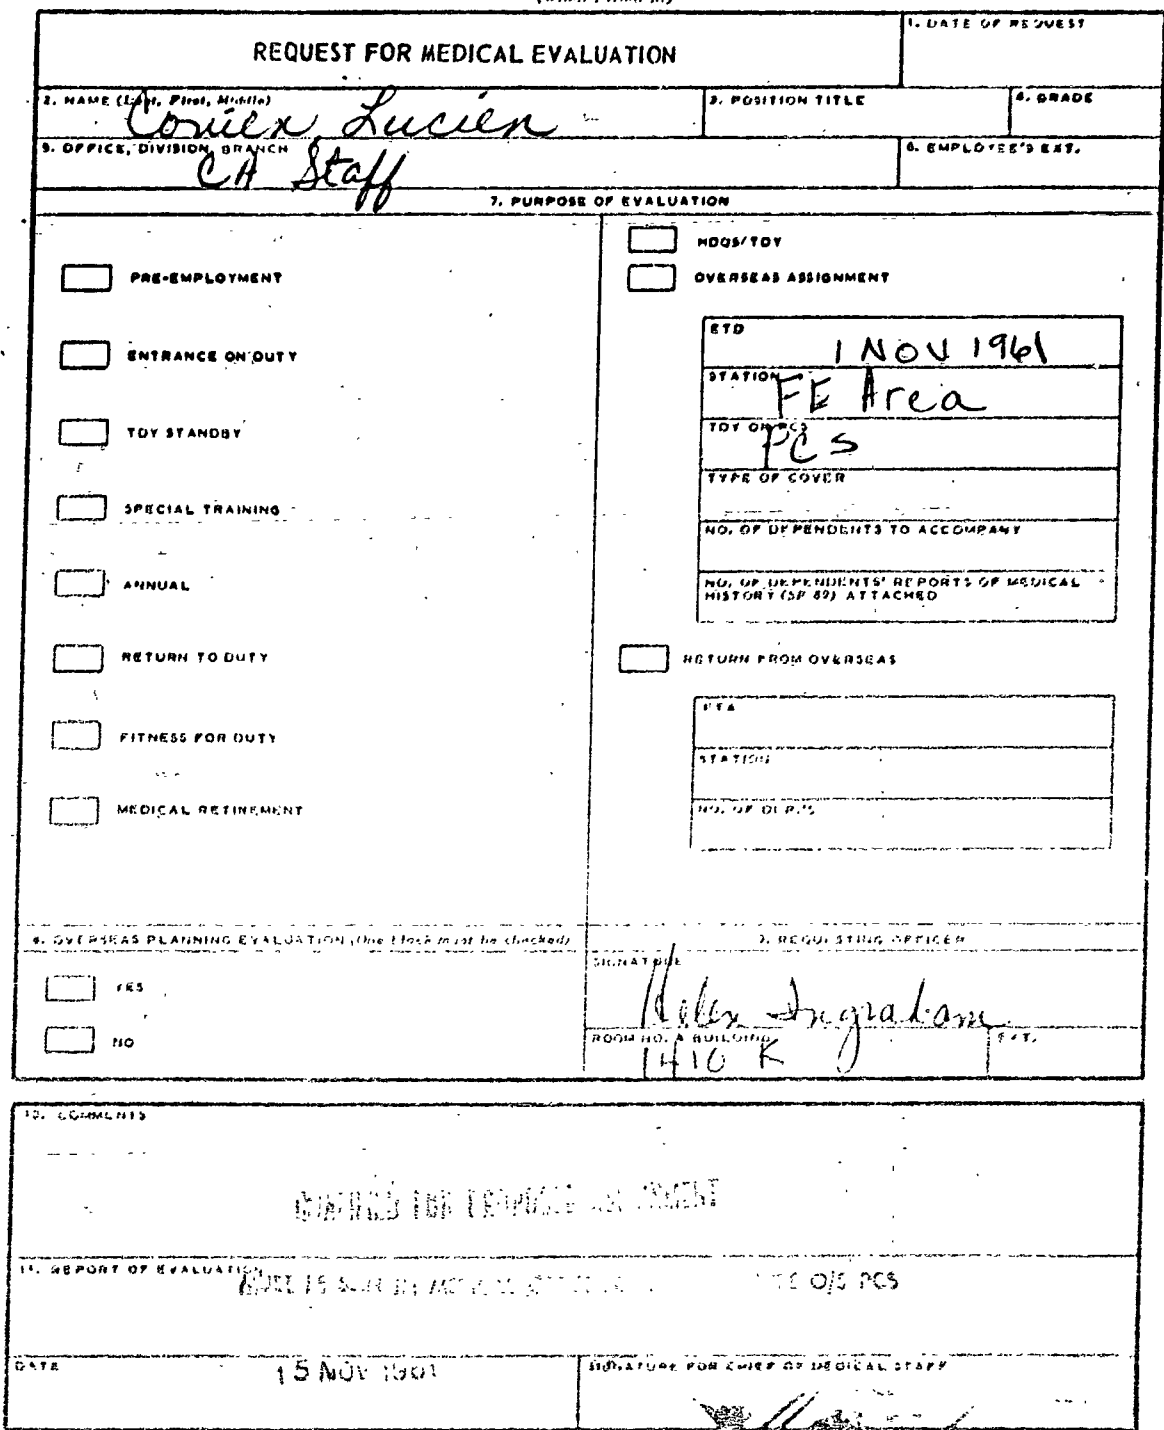 1. DATE OF REQUEST
REQUEST FOR MEDICAL EVALUATION
2. NAME (Last, First, Middle)
3. POSITION TITLE
4. GRADE
Conien, Lucien
5. OFFICE, DIVISION, BRANCH
6. EMPLOYEE'S EXT.
CA Staff
7. PURPOSE OF EVALUATION
PRE-EMPLOYMENT
ENTRANCE ON DUTY
TDY STANDBY
SPECIAL TRAINING
ANNUAL
RETURN TO DUTY
FITNESS FOR DUTY
MEDICAL RETIREMENT
HDQS/TDY
OVERSEAS ASSIGNMENT
ETD
1 NOV 1961
STATION
FE Area
TDY OR PCS
PCS
TYPE OF COVER
NO. OF DEPENDENTS TO ACCOMPANY
NO. OF DEPENDENTS' REPORTS OF MEDICAL
HISTORY (SF 89) ATTACHED
RETURN FROM OVERSEAS
ETA
STATION
NO. OF DEP.'S
8. OVERSEAS PLANNING EVALUATION (One block must be checked)
YES
NO
9. REQUESTING OFFICER
SIGNATURE
Helen Ingraham
ROOM NO. & BUILDING
EXT.
1410 K
10. COMMENTS
11. REPORT OF EVALUATION
O/S PCS
DATE
15 NOV 1961
SIGNATURE FOR CHIEF OF MEDICAL STAFF